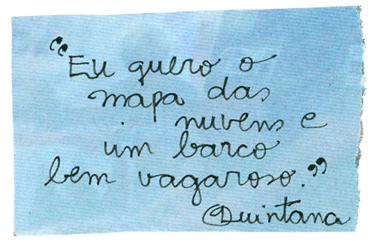 “Eu quero o
mapa das
nuvens e
um barco
bem vagaroso.”
Quintana